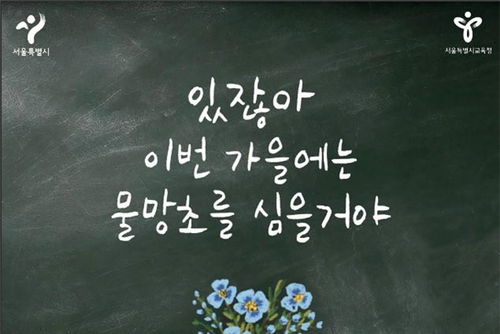 서울특별시
서울특별시교육청
있잖아
이번 가을에는
물망초를 심을거야